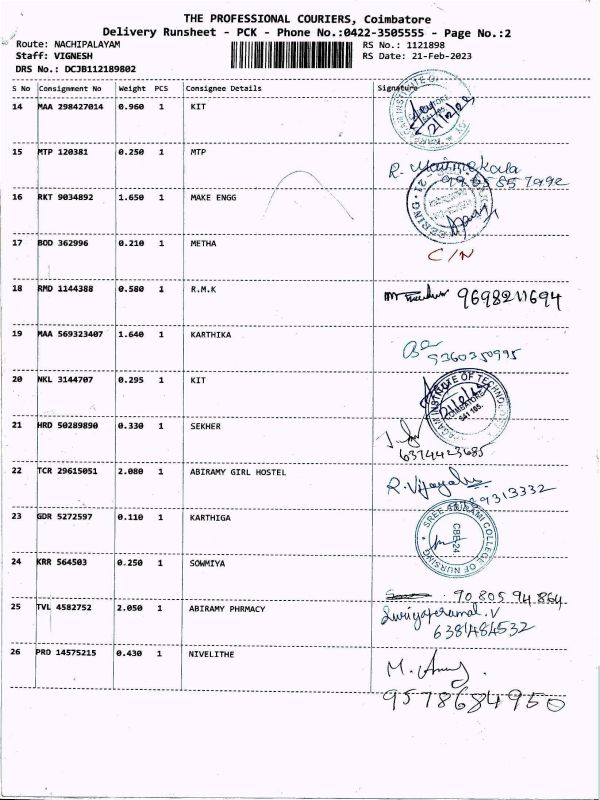 THE PROFESSIONAL COURIERS, Coimbatore
Delivery Runsheet - PCK - Phone No.:0422-3505555 - Page No.:2
Route: NACHIPALAYAM RS No.: 1121898
Staff: VIGNESH RS Date: 21-Feb-2023
DRS No.: DCJB112189802
S No Consignment No Weight PCS Consignee Details Signature
14 MAA 298427014 0.960 1 KIT
15 MTP 120381 0.250 1 MTP
R.
9965857992
16 RKT 9034892 1.650 1 MAKE ENGG
17 BOD 362996 0.210 1 METHA
C/N
18 RMD 1144388 0.580 1 R.M.K
9698211694
19 MAA 569323407 1.640 1 KARTHIKA
9360350995
20 NKL 3144707 0.295 1 KIT
INSTITUTE OF TECHNOLOGY
COIMBATORE
641 105.
21 HRD 50289890 0.330 1 SEKHER
6374423685
22 TCR 29615051 2.080 1 ABIRAMY GIRL HOSTEL
R. Vijayalu
89313332
23 GDR 5272597 0.110 1 KARTHIGA
SREE ABIRAMI COLLEGE OF NURSING
CBE-24
24 KRR 564503 0.250 1 SOWMIYA
90805 94864
25 TVL 4582752 2.050 1 ABIRAMY PHRMACY
Suriyaperumal. V
6381484532
26 PRO 14575215 0.430 1 NIVELITHE
M.
9578684950